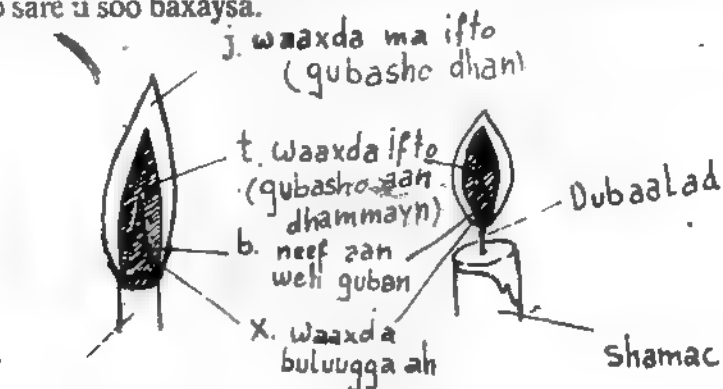 sare u soo baxaysa.
j. waaxda ma ifto
(gubasho dhan)
t. waaxda ifto
(gubasho aan
dhammayn)
b. neef aan
weli guban
x. waaxda
buluugga ah
Dubaalad
shamac